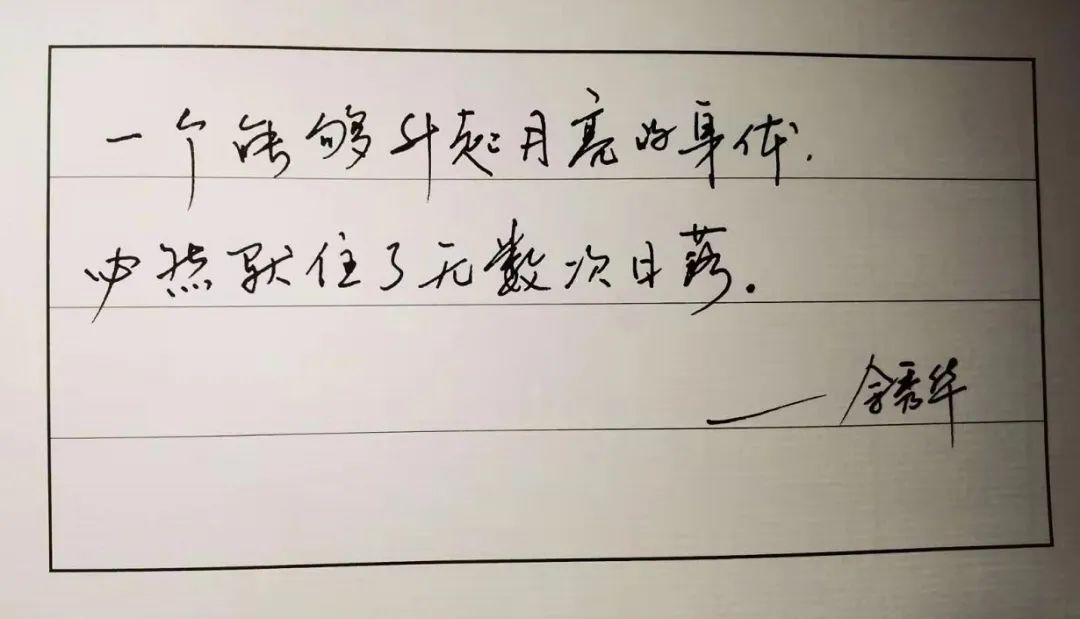 一个能够升起月亮的身体,
必然驮住了无数次日落.
——余秀华